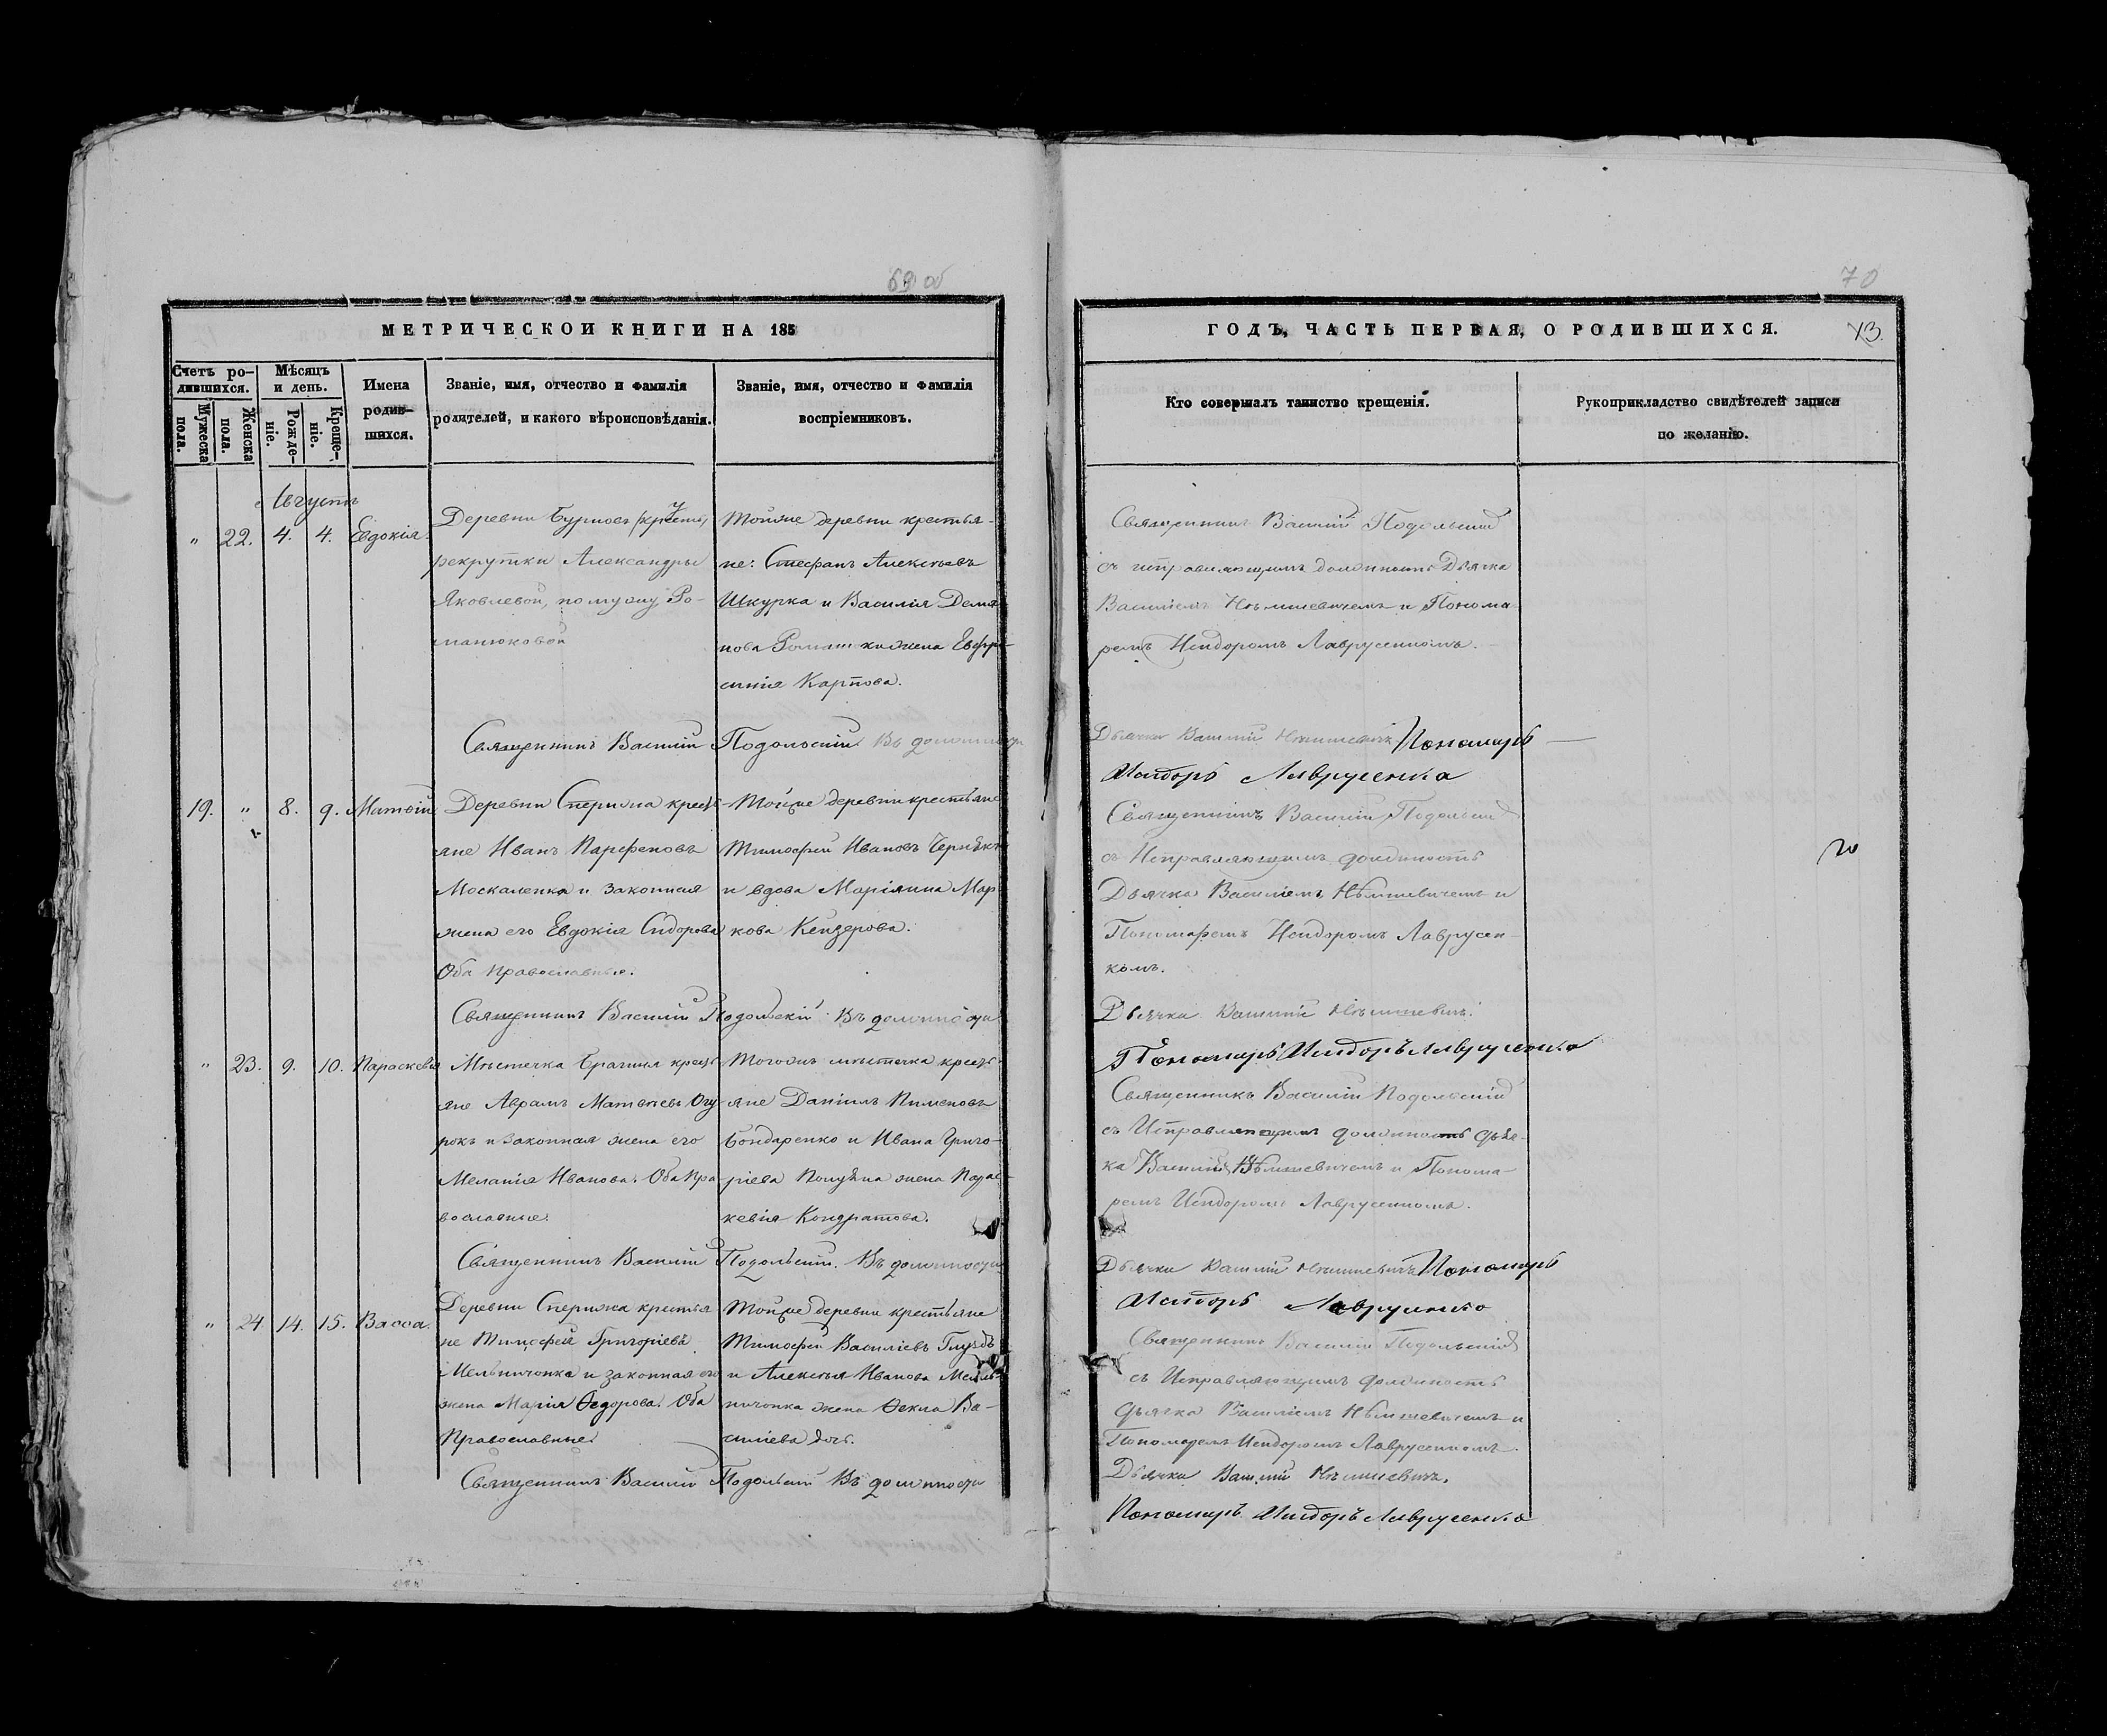 69 об
МЕТРИЧЕСКОЙ КНИГИ НА 185
Счетъ ро-
дившихся.
Мужеска
пола.
Женска
пола.
Мѣсяцъ
и день.
Рожде-
ніе.
Креще-
ніе.
Имена
родив-
шихся.
Званіе, имя, отчество и фамилія
родителей, и какого вѣроисповѣданія.
Званіе, имя, отчество и фамилія
воспріемниковъ.
Августъ
" 22. 4. 4. Евдокія.
Деревни
рекрутки Александры
Яковлевой, по мужу Ро-
манюковой
Тойже деревни крестья-
не: Стефанъ Алексѣевъ
Шкурка и Василія Демя-
нова жена Евфро-
синія Карпова.
Священникъ Василій Подольскій. Въ должности
19. " 8. 9. Матвѣй
Деревни Спержа кресть-
яне Иванъ Парфеновъ
Москаленко и законная
жена его Евдокія Сидорова
Оба православные.
Тойже деревни крестьяне
Тимофей Ивановъ
и вдова Маріянна Мар-
кова
Священникъ Василій Подольскій. Въ должности
" 23. 9. 10. Параскевія
Мѣстечка Брагиня кресть-
яне Аврамъ Матвѣевъ Огу-
рокъ и законная жена его
Меланія Иванова. Оба Пра-
вославные.
Тогожъ мѣстечка кресть-
яне Даніилъ Пименовъ
Бондаренко и Ивана Григо-
ріева жена Парас-
кевія Кондратова.
Священникъ Василій Подольскій. Въ должности
" 24. 14. 15. Васса.
Деревни Спержа крестья-
не Тимофей Григоріевъ
Мельниченка и законная его
жена Марія Ѳедорова. Оба
Православные.
Тойже деревни крестьяне
Тимофей Василіевъ
и Алексѣя Иванова Мель-
ниченка жена Ѳекла Ва-
силіева дочь.
Священникъ Василій Подольскій Въ должности
70
ГОДЪ, ЧАСТЬ ПЕРВАЯ, О РОДИВШИХСЯ.
Кто совершалъ таинство крещенія.
Рукоприкладство свидѣтелей записи
по желанію.
Священникъ Василій Подольскій
съ исправляющимъ должность Дьячка
Василіемъ Нѣмшевичемъ и Понома-
ремъ Исидоромъ Лаврусенкомъ.
Дьячка Василій Нѣмшевичъ Пономарь
Исидоръ Лаврусенко
Священникъ Василій Подольскій
съ Исправляющимъ должность
Дьячка Василіемъ Нѣмшевичемъ и
Пономаремъ Исидоромъ Лаврусен-
комъ.
Дьячка Василій Нѣмшевичъ.
Пономарь Исидоръ Лаврусенко
Священникъ Василій Подольскій
съ Исправляющимъ должность дьяч-
ка Василіемъ Нѣмшевичемъ и Понома-
ремъ Исидоромъ Лаврусенкомъ.
Дьячка Василій Нѣмшевичъ Пономарь
Исидоръ Лаврусенко
Священникъ Василій Подольскій
съ Исправляющимъ должность
дьячка Василіемъ Нѣмшевичемъ и
Пономаремъ Исидоромъ Лаврусенкомъ.
Дьячка Василій Нѣмшевичъ.
Пономарь Исидоръ Лаврусенко